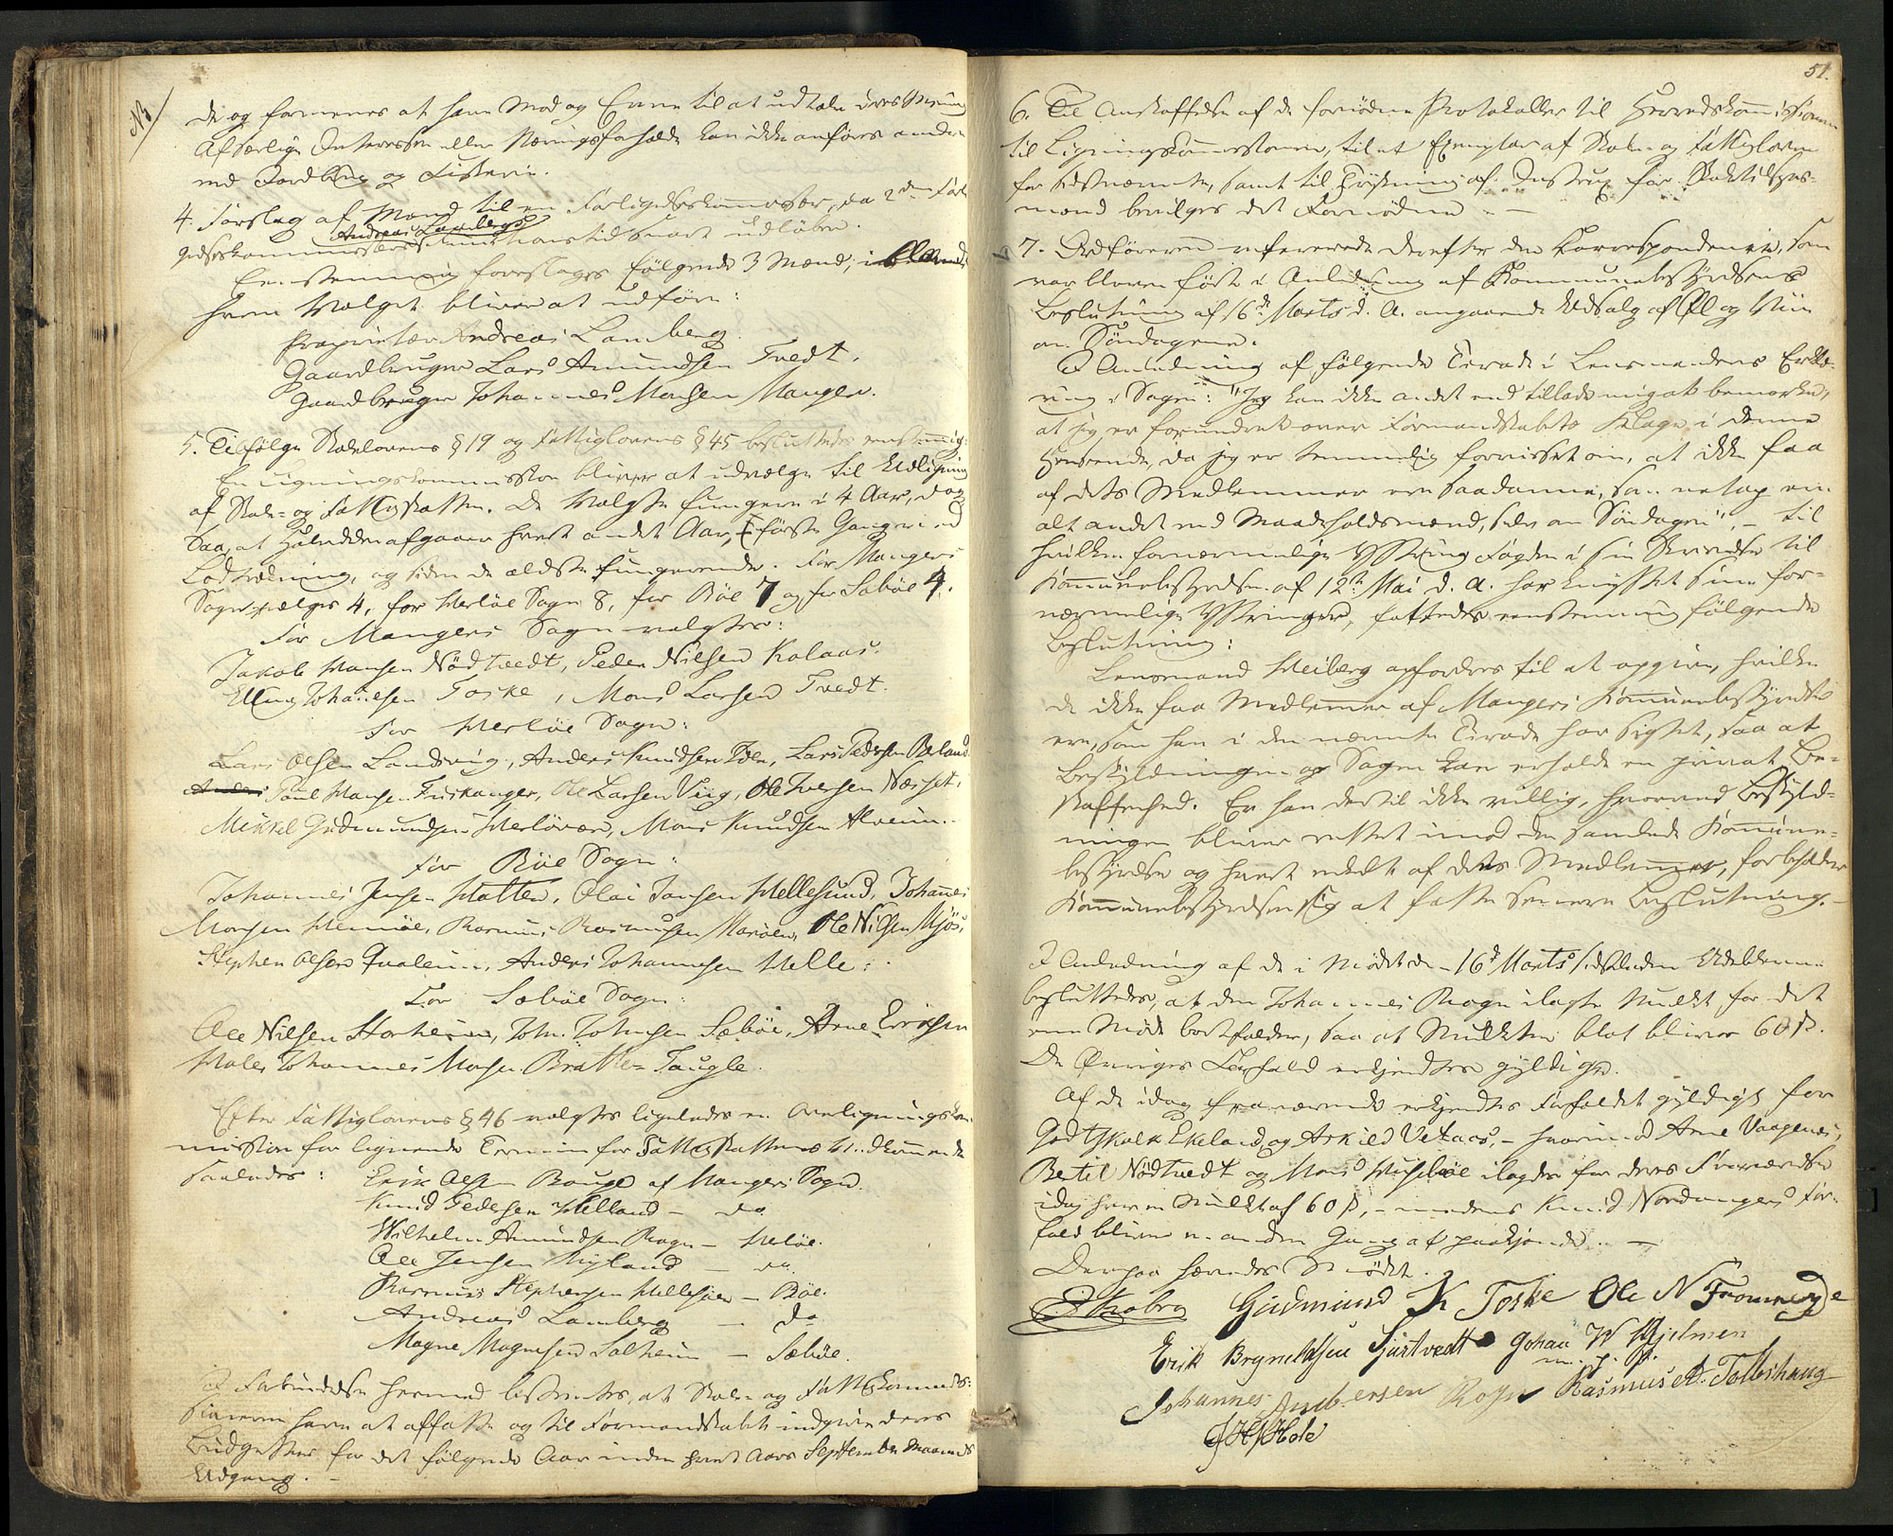 NB
de og formenes at have Mod og Evne til at udtale deres Mening
Af særlige Interesser eller Næringsforhold kan ikke anføres andre
end Jordbrug og Fiskeri.
4. Forslag af Mænd til en Forligelseskommissær, da 2den Forli-
gelseskommissærs Andreas Lambergs Funktionstid snart udløber.
Eenstemmig foreslages følgende 3 Mænd, iblandt
hvem Valget bliver at udføre:
Proprietær Andreas Lamberg.
Gaardbruger Lars Amundsen Tvedt.
Gaardbruger Johannes Monsen Manger.
5. Ifølge Skolelovens § 19 og Fattiglovens § 45 besluttedes eenstemmig:
En Ligningskommission bliver at udvælge til Udligning
af Skole- og Fattigskatten. De Valgte fungere i 4 Aar, dog
saa, at Halvdelen afgaaer hvert andet Aar, første Gang ved
Lodtrækning, og siden de ældste fungerende. For Mangers
Sogn vælges 4, for Herløe Sogn 8, for Böe 7 og for Sæböe 4.
For Mangers Sogn valgtes:
Jakob Hansen Nödtvedt, Peder Nilsen Kolaas.
Elling Johannesen Toske, Mons Larsen Tvedt.
For Herløe Sogn:
Lars Olsen Landsvig, Anders Knudsen, Lars Pedersen
Anders Poul Hansen Fuskanger, Ole Larsen Viig, Ole Iversen Næsset,
Mikkel Gudmundsen Herløvær, Mons Knudsen Alveim.
For Böe Sogn:
Johannes Jensen Hatten, Olai Jansen Hellesund, Johannes
Monsen Hernöe, Rasmus Rasmussen Maröen, Ole Nilsen Mjös,
Stephen Olsen Qvaleim, Anders Johannesen Helle.
For Sæböe Sogn:
Ole Nilsen Storheim, John Johnsen Sæböe, Arne Eriksen
Hole, Johannes Monsen Bratten Taugle.
Efter Fattiglovens § 46 valgtes ligeledes en Overligningskom-
mission for lignende Termin for Fattigskattens Vedkommende
saaledes:
Erik Olsen Rauge af Mangers Sogn.
Knud Pedersen Helland - do
Wilhelm Amundsen Rogn - Herløe.
Ole Jensen Myland - do.
Rasmus Stephensen Hellesöe - Böe.
Andreas Lamberg - do
Magne Magnesen Solheim - Sæböe.
I Forbindelse hermed bestemtes, at Skole og Fattigkommis-
sionerne have at affatte og til Formandskabet indgive deres
Budgetter for det følgende Aar inden hvert Aars September Maaneds
Udgang. -
51.
6. Til Anskaffelse af de fornødne Protokoller til Herredskommissionen
til Ligningskommissionen, til et Exemplar af Skole- og Fattigloven
for sidstnævnte, samt til Trykning af Instrux for Skoletilsyns-
mænd bevilges det Fornødne. -
7. Ordføreren refererede derefter den Korrespondence, som
var bleven ført i Anledning af Kommunebestyrelsens
Beslutning af 16de Marts d. A. angaaende Udsalg af Øl og Viin
om Søndagene.
I Anledning af følgende Tirade i Lensmandens Erklæ-
ring i Sagen: "Jeg kan ikke andet end tillade mig at bemærke,
at jeg er forundret over Formandskabets Klage i denne
Henseende, da jeg er temmelig forvisset om, at ikke faa
af dets Medlemmer ere saadanne, som netop ere
alt andet end Maadeholdsmænd, selv om Søndagen", - til
hvilken fornærmelige Yttring Fogden i sin Skrivelse til
Kommunebestyrelsen af 12te Mai d. A. har knyttet sine for-
nærmelige Yttringer, fattedes eenstemmig følgende
Beslutning:
Lensmand Heiberg opfordres til at opgive, hvilke
de ikke faa Medlemmer af Mangers Kommunebestyrelse
ere, som han i den nævnte Tirade har sigtet, saa at
Beskyldningen og Sagen kan erholde en privat Be-
skaffenhed. Er han dertil ikke villig, hvorved Beskyld-
ningen bliver rettet imod den samlede Kommune-
bestyrelse og hvert enkelt af dets Medlemmer, forbeholder
Kommunebestyrelsen sig at fatte senere Beslutning. -
I Anledning af de i Mødet den 16de Marts sidstleden Udeblevne
besluttedes, at den Johannes Rogn ilagte Mulkt for det
ene Møde bortfalder, saa at Mulkten blot bliver 60 ß.
De Øvriges Forfald erkjendtes gyldige.
Af de idag fraværende erkjendtes Forfaldet gyldigt for
Godtskalk Ekeland og Askild Vetaas, - hvorimod Arne Vaagenes,
Bertil Nödtvedt og Mons Husebøe ilagdes for deres Fraværelse
idag hver en Mulkt af 60 ß, - medens Knud Nordangers For-
fald bliver en anden Gang at paakjende. -
Derpaa hævedes Mødet.
Gudmund K Toske Ole N Fromreide
Erik Brynildsen Hjertvedt Johan W Hjelmen
m. p. P.
Johannes Andersen Rogn Rasmus A. Tolleshaug
J H Hole